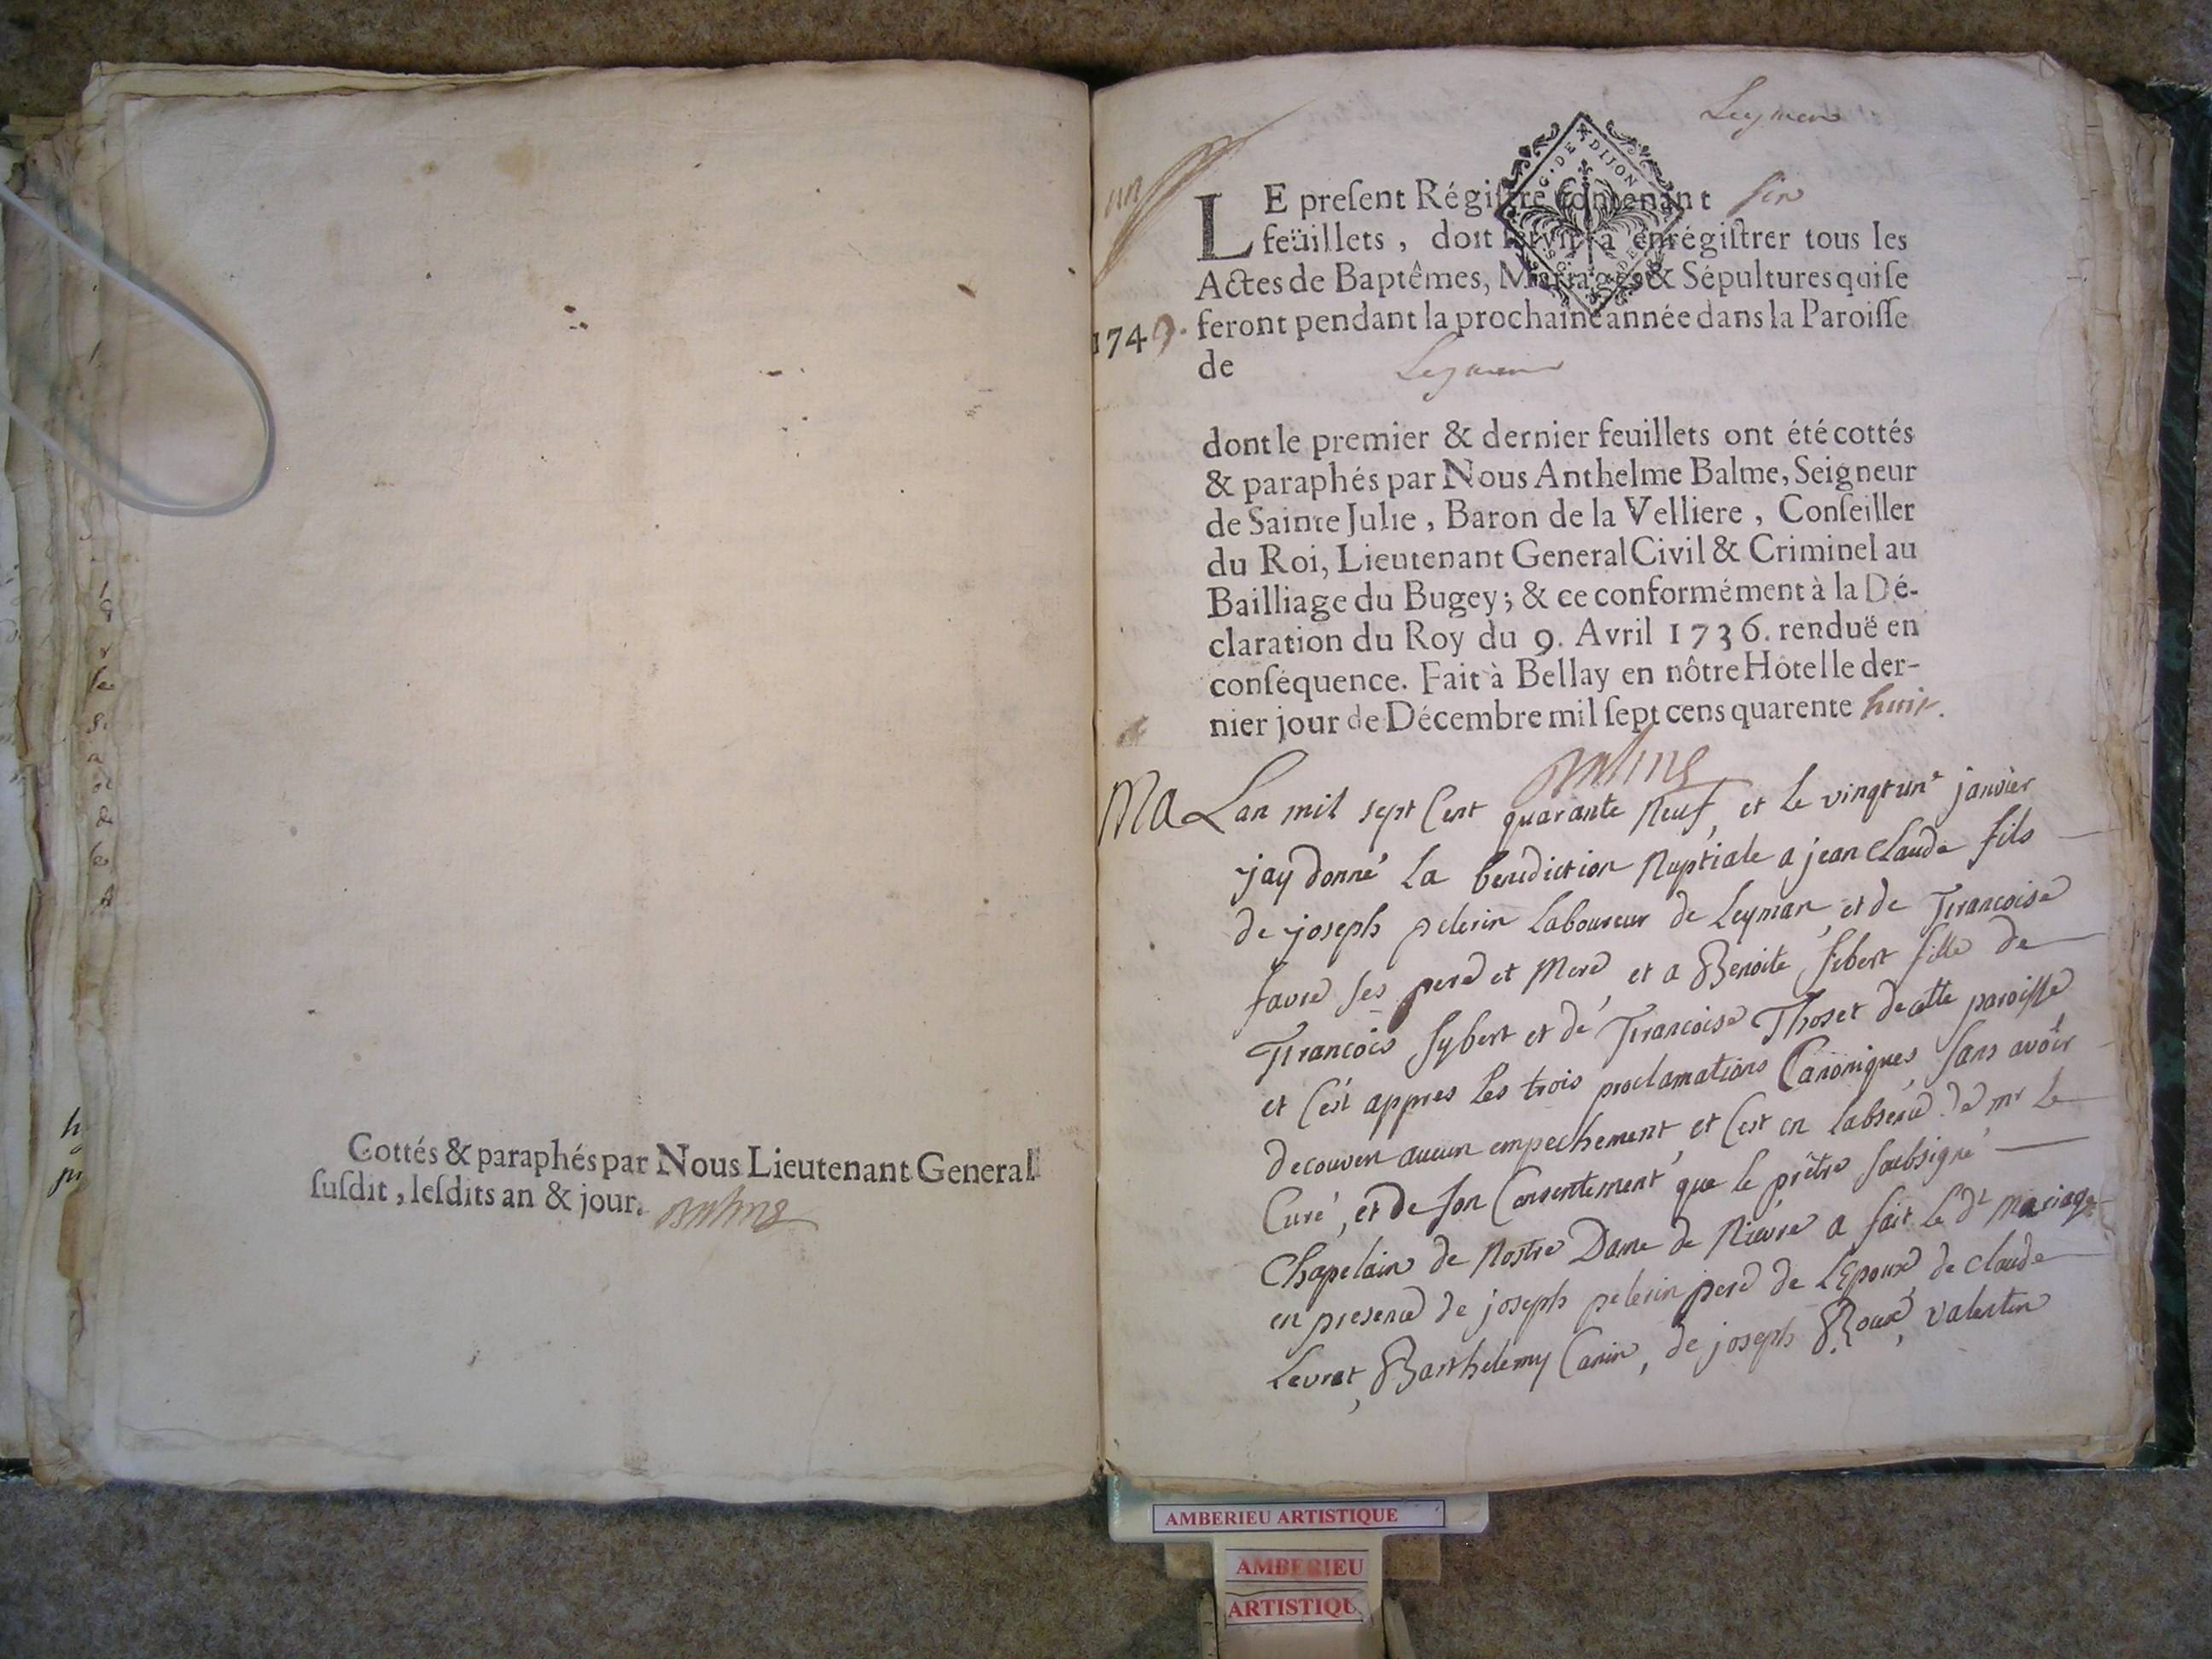 Cottés & paraphés par Nous Lieutenant General
ſuſdit, leſdits an & jour. Balme
Leymen
G. DE DIJON
un
LE preſent Régiſtre contenant ſix
feüillets, doit ſervir à enrégiſtrer tous les
Actes de Baptêmes, Mariages & Sépultures qui ſe
1749. feront pendant la prochaine année dans la Paroiſſe
de Leymen
dont le premier & dernier feuillets ont été cottés
& paraphés par Nous Anthelme Balme, Seigneur
de Sainte Julie, Baron de la Velliere, Conſeiller
du Roi, Lieutenant General Civil & Criminel au
Bailliage du Bugey; & ce conformément à la Dé-
claration du Roy du 9. Avril 1736. renduë en
conſéquence. Fait à Bellay en nôtre Hôtel le der-
nier jour de Décembre mil ſept cens quarente huit.
Balme
Ma Lan mil sept Cent quarante Neuf, et le vingt un^e janvier
jay donné La benediction Nuptiale a jean Claude fils
de joseph pelerin Laboureur de Leyman, et de Francoise
favre ses pere et Mere et a Benoite sibert fille de
Francois sybert et de Francoise Thoset de cette paroisse
et C'est appres les trois proclamations Canoniques, sans avoir
decouvert aucun empechement, et C'est en labsence de mr Le
Curé, et de son Consentement que le prêtre soubsigné
Chapelain de Nostre Dame de Nievre a fait le dt Mariage
en presence de joseph pelerin pere de L'Epoux, de Claude
Levrat, Barthelemy Canin, de joseph Roux, valentin
AMBERIEU ARTISTIQUE
AMBERIEU
ARTISTIQU